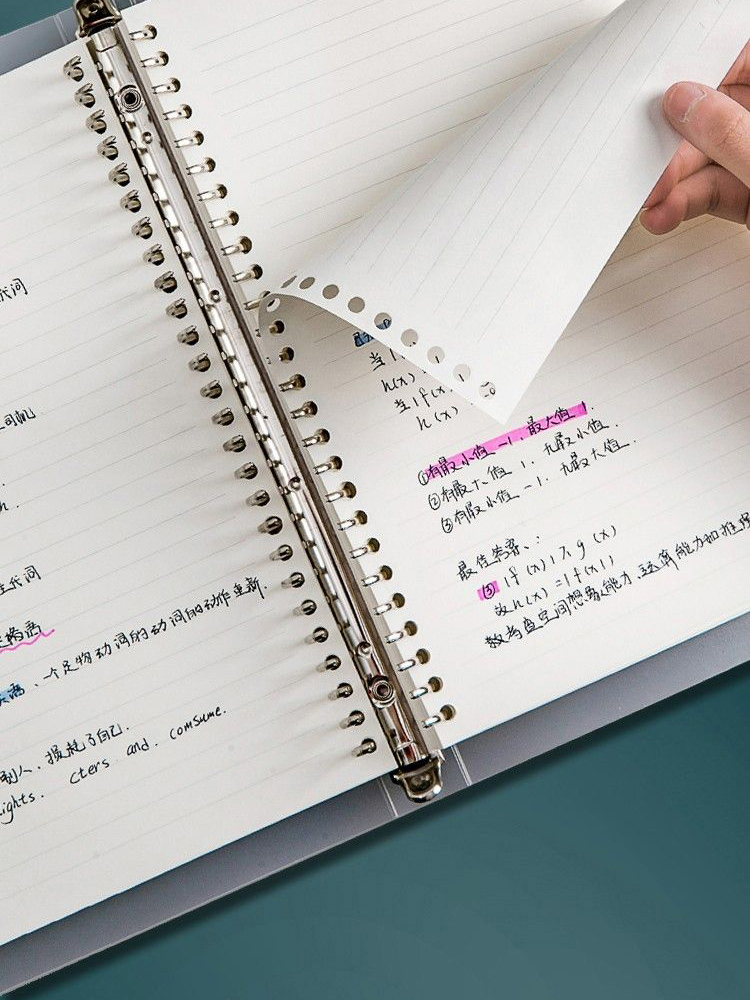 代词
司机
h.
主代词
离、一个是物动词的动词的动作重新.
别人、损耗了自己.
ights. cters and. comsume.
当
h(x)
当|f(x
h(x)
①有最小值-1,最大值1.
②有最大值1.无最小值.
③有最小值-1.无最大值.
最佳答案:
③ |f(x)|≥g(x)
故h(x)=|f(x)|
数考查空间想象能力、运算能力和推理